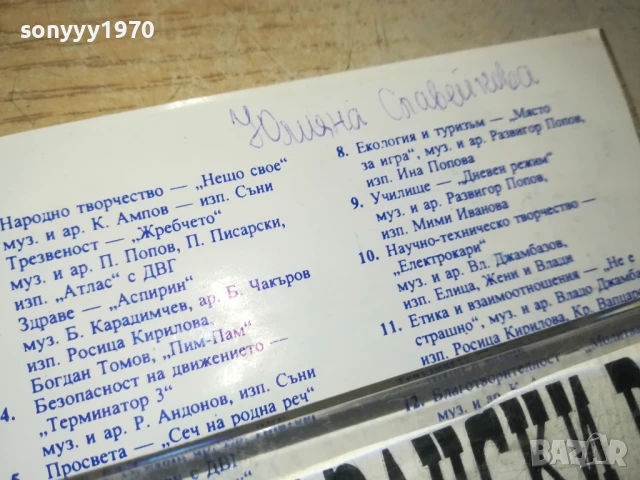 sonyyy1970
Юлияна Славейкова
Народно творчество — „Нещо свое“
муз. и ар. К. Ампов — изп. Съни
Трезвеност — „Жребчето“
муз. и ар. П. Попов, П. Писарски,
изп. „Атлас“ с ДВГ
Здраве — „Аспирин“
муз. Б. Карадимчев, ар. Б. Чакъров
изп. Росица Кирилова,
Богдан Томов, „Пим-Пам“
4. Безопасност на движението —
„Терминатор 3“
муз. и ар. Р. Андонов, изп. Съни
Просвета — „Сеч на родна реч“
с ДВГ
8. Екология и туризъм — „Място
за игра“, муз. и ар. Развигор Попов,
изп. Ина Попова
9. Училище — „Дневен режим“
муз. и ар. Развигор Попов,
изп. Мими Иванова
10. Научно-техническо творчество —
„Електрокари“
муз. и ар. Вл. Джамбазов,
изп. Елица, Жени и Влади
11. Етика и взаимоотношения — „Не е
страшно“, муз. и ар. Владо Джамба
изп. Росица Кирилова, Кр.
12. Благотворителност —
муз. и ар.
bazar